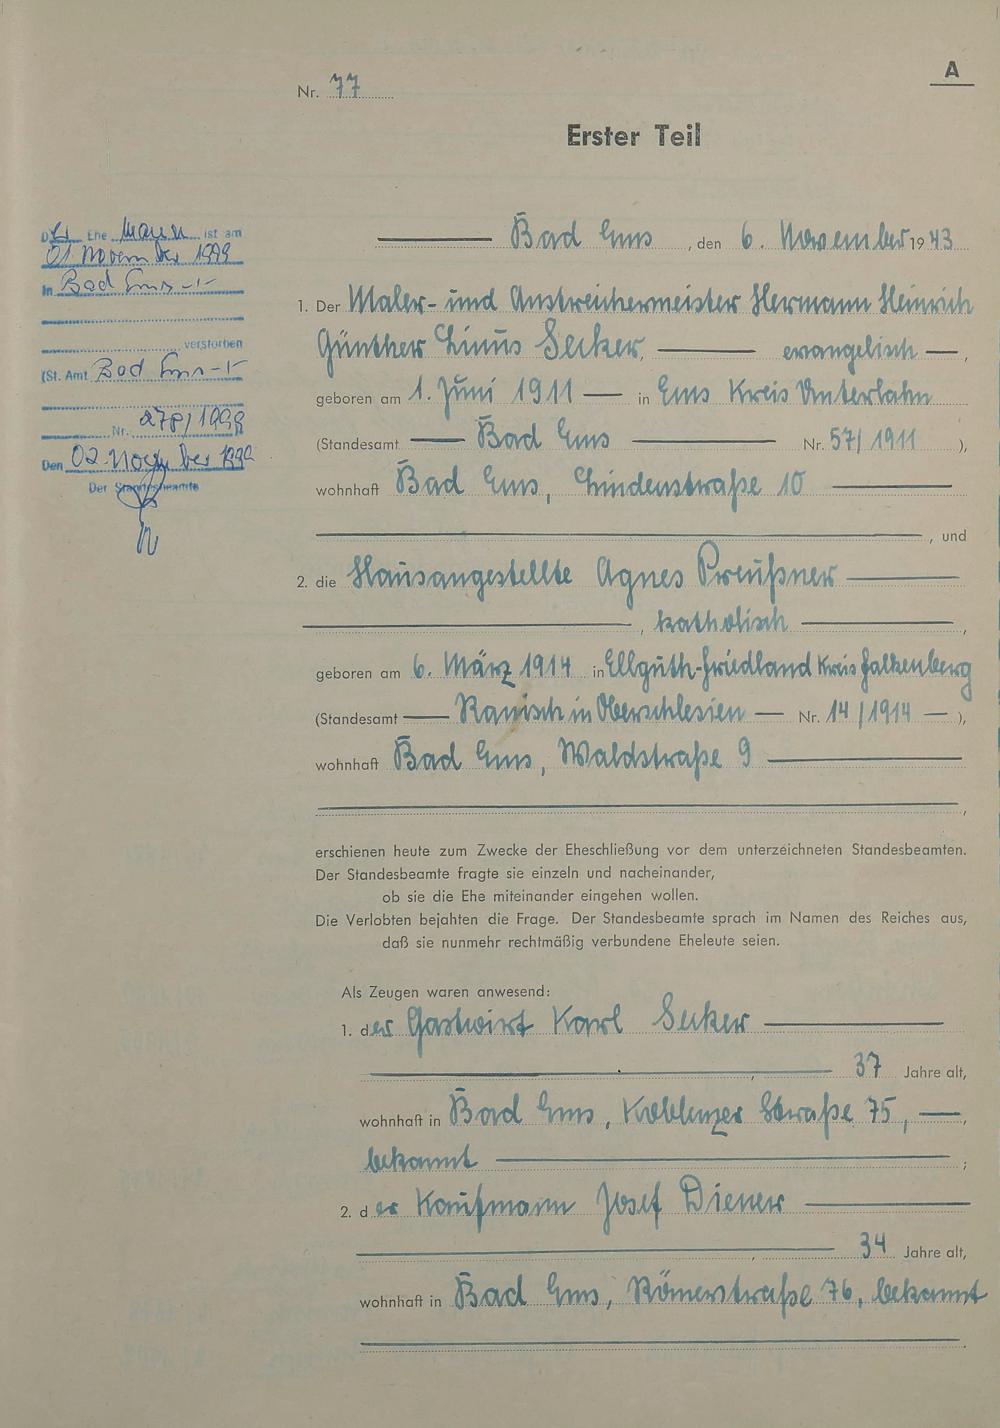 A
Nr. 77
Erster Teil
Der Ehemann ist am
01. November 1999
in Bad Ems -/-
verstorben
(St. Amt Bad Ems -/-
Nr. 278/1999
Den 02. November 1999
Der Standesbeamte
Bad Ems, den 6. November 1943
1. Der Maler- und Anstreichermeister Hermann Heinrich
Günther Linus Secker, evangelisch,
geboren am 1. Juni 1911 in Ems Kreis Unterlahn
(Standesamt Bad Ems Nr. 57/1911 ),
wohnhaft Bad Ems, Lindenstraße 10
, und
2. die Hausangestellte Agnes Preußner
, katholisch ,
geboren am 6. März 1914 in Ellguth-Friedland Kreis Falkenberg
(Standesamt in Oberschlesien Nr. 14/1914 ),
wohnhaft Bad Ems, Waldstraße 9
,
erschienen heute zum Zwecke der Eheschließung vor dem unterzeichneten Standesbeamten.
Der Standesbeamte fragte sie einzeln und nacheinander,
ob sie die Ehe miteinander eingehen wollen.
Die Verlobten bejahten die Frage. Der Standesbeamte sprach im Namen des Reiches aus,
daß sie nunmehr rechtmäßig verbundene Eheleute seien.
Als Zeugen waren anwesend:
1. der Gastwirt Karl Secker
, 37 Jahre alt,
wohnhaft in Bad Ems, Koblenzer Straße 75, ,
bekannt ;
2. der Kaufmann Josef Diener
, 34 Jahre alt,
wohnhaft in Bad Ems, Römerstraße 76, bekannt